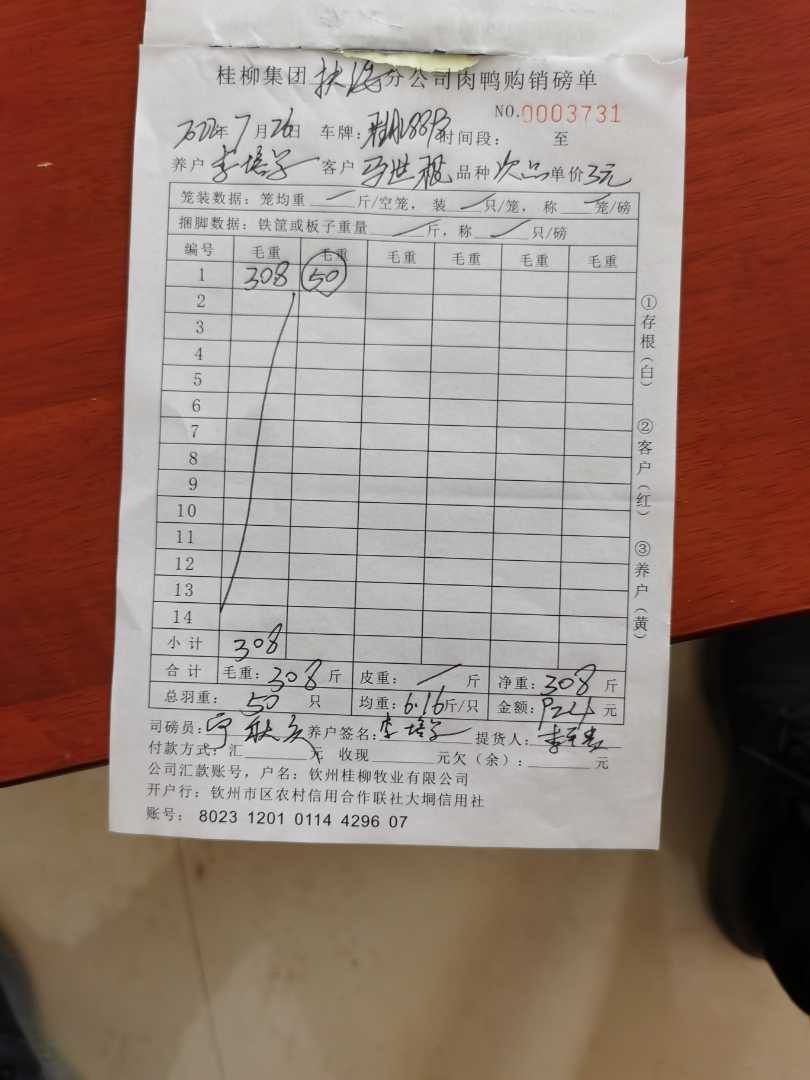 桂柳集团 分公司肉鸭购销磅单
NO.0003731
2022年7月26日 车牌： 时间段： 至
养户 李培 客户 马世 品种 次品 单价 3元
笼装数据：笼均重 / 斤/空笼，装 / 只/笼，称 / 笼/磅
捆脚数据：铁筐或板子重量 / 斤，称 / 只/磅
编号 毛重 毛重 毛重 毛重 毛重 毛重
1 308 50
2
3
4
5
6
7
8
9
10
11
12
13
14
小计 308
合计 毛重：308斤 皮重：/ 斤 净重：308斤
总羽重：50 只 均重：6.16斤/只 金额：924元
司磅员： 养户签名：李培 提货人：
付款方式：汇 元 收现 元欠（余）： 元
公司汇款账号，户名：钦州桂柳牧业有限公司
开户行：钦州市区农村信用合作联社大垌信用社
账号：8023 1201 0114 4296 07
①存根（白） ②客户（红） ③养户（黄）